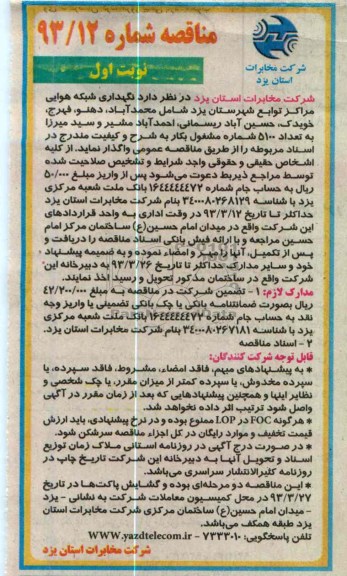 مناقصه شماره ۹۳/۱۲
نوبت اول
شرکت مخابرات
استان یزد
شرکت مخابرات استان یزد در نظر دارد نگهداری شبکه هوایی
مراکز توابع شهرستان یزد شامل محمدآباد، دهنو، فهرج،
خویدک، حسین آباد ریسمانی، احمدآباد مشیر و سید میرزا
به تعداد ۵۱۰۰ شماره مشغول بکار به شرح و کیفیت مندرج در
اسناد مربوطه را از طریق مناقصه عمومی واگذار نماید. از کلیه
اشخاص حقیقی و حقوقی واجد شرایط و تشخیص صلاحیت شده
توسط مراجع ذیربط دعوت می‌شود پس از واریز مبلغ ۵۰/۰۰۰
ریال به حساب جام شماره ۱۶۴۴۴۴۴۴۷۲ بانک ملت شعبه مرکزی
یزد با شناسه ۳۴۰۰۰۸۰۲۶۸۱۲۹ بنام شرکت مخابرات استان یزد
حداکثر تا تاریخ ۹۳/۳/۱۲ در وقت اداری به واحد قراردادهای
این شرکت واقع در میدان امام حسین(ع) ساختمان مرکز امام
حسین مراجعه و با ارائه فیش بانکی اسناد مناقصه را دریافت و
پس از تکمیل، آنها را مهر و امضاء نموده و به ضمیمه پیشنهاد
خود و سایر مدارک حداکثر تا تاریخ ۹۳/۳/۲۶ به دبیرخانه این
شرکت واقع در ساختمان مذکور تحویل و رسید اخذ نمایند.
مدارک لازم: ۱ - تضمین شرکت در مناقصه به مبلغ ۴۲/۲۰۰/۰۰۰
ریال بصورت ضمانتنامه بانکی یا چک بانکی تضمینی یا واریز وجه
نقد به حساب جام شماره ۱۶۴۴۴۴۴۴۷۲ بانک ملت شعبه مرکزی
یزد با شناسه ۳۴۰۰۰۸۰۲۶۷۱۸۱ بنام شرکت مخابرات استان یزد.
۲ - اسناد مناقصه
قابل توجه شرکت کنندگان:
* به پیشنهادهای مبهم، فاقد امضاء، مشروط، فاقد سپرده، یا
سپرده مخدوش، یا سپرده کمتر از میزان مقرر، یا چک شخصی و
نظایر اینها و همچنین پیشنهادهایی که بعد از زمان مقرر در آگهی
واصل شود ترتیب اثر داده نخواهد شد.
* هرگونه FOC در LOP ممنوع بوده و در نرخ پیشنهادی، باید ارزش
قیمت تخفیف و موارد رایگان در کل اجزاء مناقصه سرشکن شود.
* در صورت درج آگهی در روزنامه استانی ملاک زمان توزیع
اسناد و تحویل آنها به دبیرخانه این شرکت تاریخ چاپ در
روزنامه کثیرالانتشار سراسری می‌باشد.
* این مناقصه دو مرحله‌ای بوده و گشایش پاکت‌ها در تاریخ
۹۳/۳/۲۷ در محل کمیسیون معاملات شرکت به نشانی - یزد
- میدان امام حسین(ع) ساختمان مرکزی شرکت مخابرات استان
یزد طبقه همکف می‌باشد.
تلفن پاسخگویی: ۷۲۳۳۰۱۰ - WWW.yazdtelecom.ir
شرکت مخابرات استان یزد